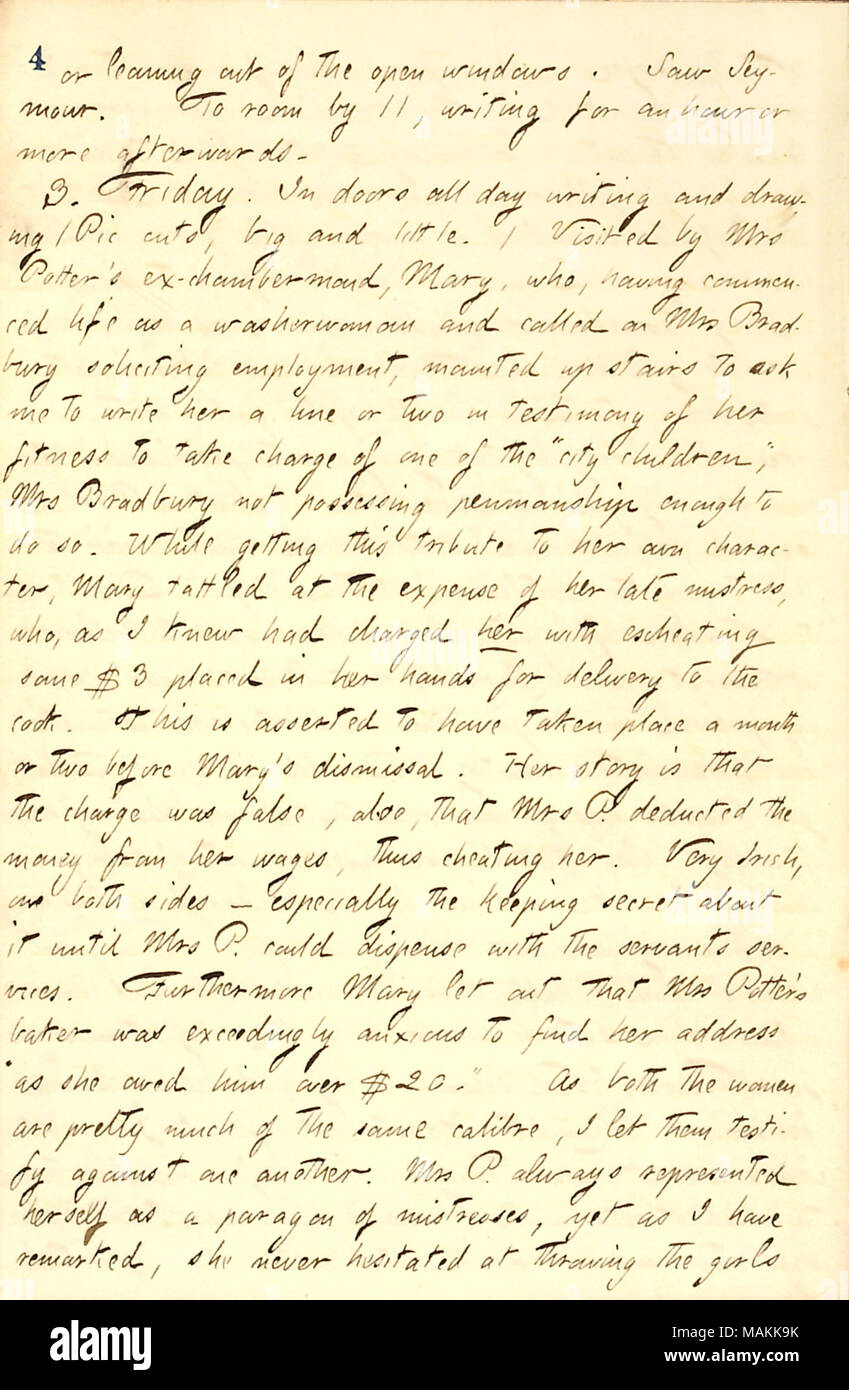 4
or leaning out of the open windows. Saw Sey-
mour. To room by 11, writing for an hour or
more afterwards.
3. Friday. In doors all day writing and draw-
ing / Pic cuts, big and little. / Visited by Mrs
Potter's ex-chambermaid, Mary, who, having commen-
ced life as a washerwoman and called on Mrs Brad-
bury soliciting employment, mounted up stairs to ask
me to write her a line or two in testimony of her
fitness to take charge of one of the "city children",
Mrs Bradbury not possessing penmanship enough to
do so. While getting this tribute to her own charac-
ter, Mary tattled at the expense of her late mistress,
who, as I knew had charged her with escheating
some $3 placed in her hands for delivery to the
cook. This is asserted to have taken place a month
or two before Mary's dismissal. Her story is that
the charge was false, also, that Mrs P. deducted the
money from her wages, thus cheating her. Very Irish,
on both sides — especially the keeping secret about
it until Mrs P. could dispense with the servants ser-
vices. Furthermore Mary let out that Mrs Potter's
baker was exceedingly anxious to find her address
"as she owed him over $20." As both the women
are pretty much of the same calibre, I let them testi-
fy against one another. Mrs P. always represented
herself as a paragon of mistresses, yet as I have
remarked, she never hesitated at throwing the girls
alamy
Image ID: MAKK9K
www.alamy.com